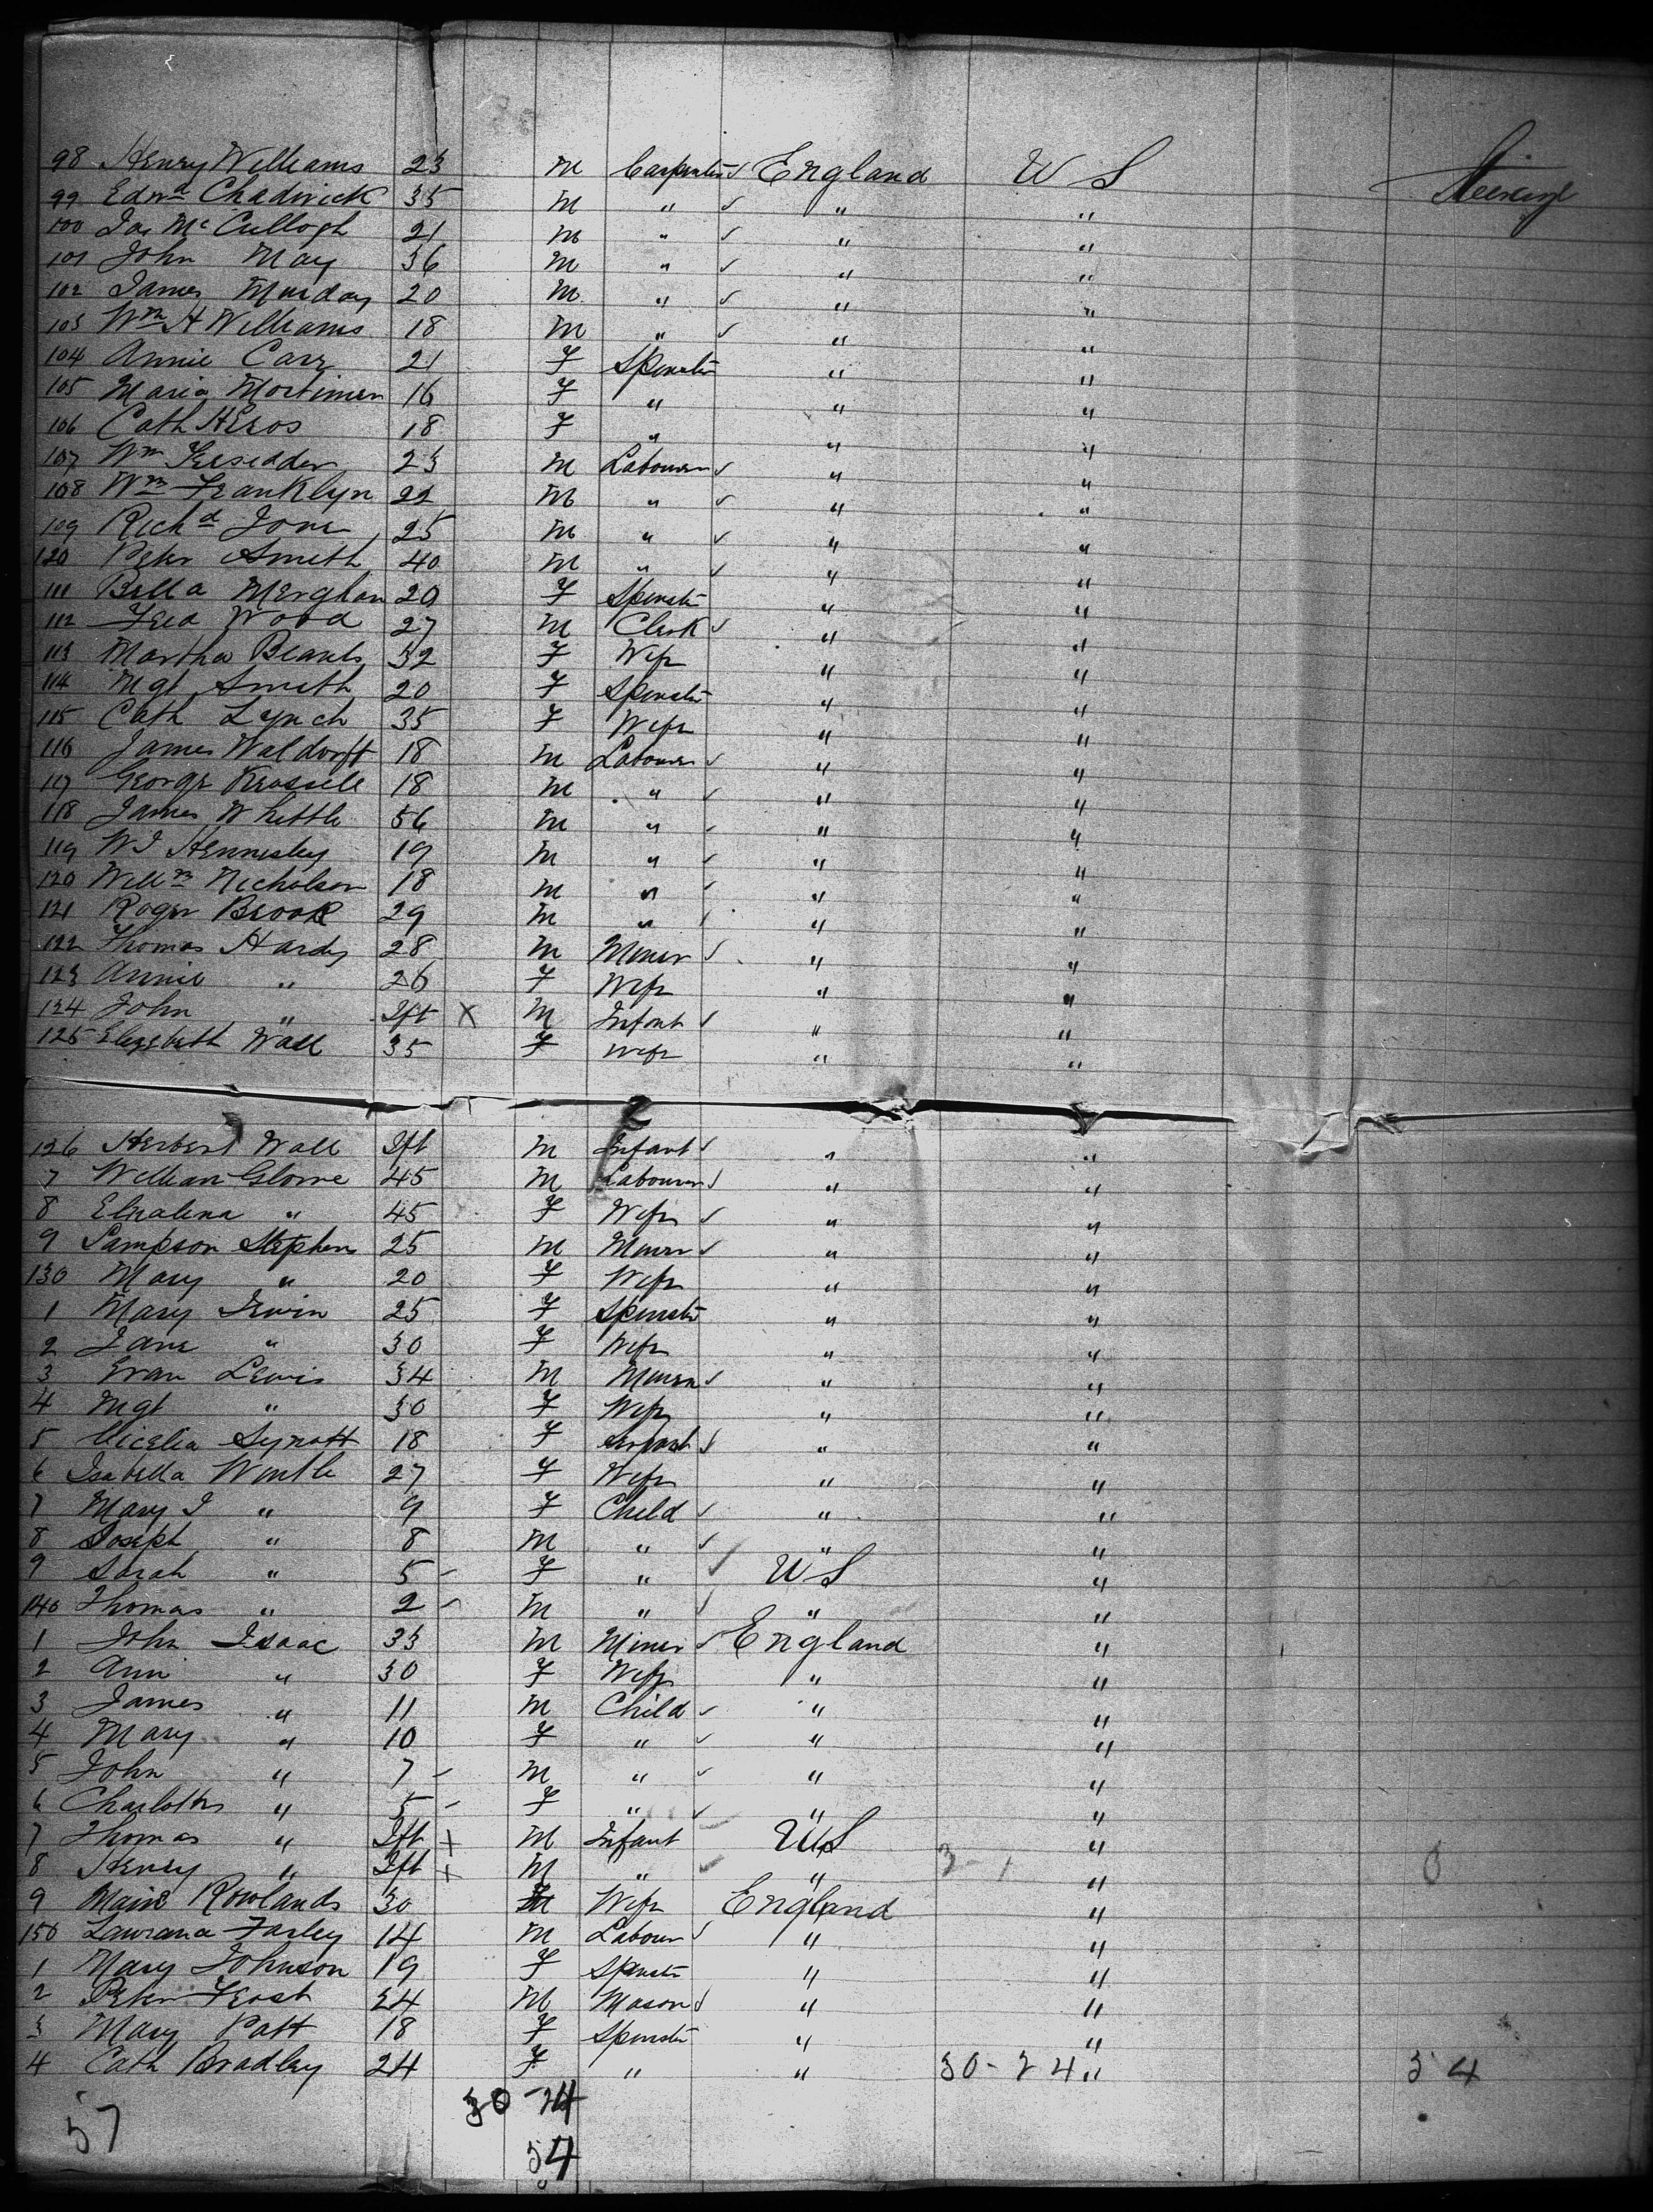 98 Henry Williams 23 M Carpenter ✓ England U S Steerage
99 Edwd Chadwick 35 M " ✓ " "
100 Jas McCullogh 21 M " ✓ " "
101 John May 36 M " ✓ " "
102 James Munday 20 M " ✓ " "
103 Wm H Williams 18 M " ✓ " "
104 Annie Carr 21 F Spinster " "
105 Maria Mortimer 16 F " " "
106 Cath 18 F " " "
107 Wm 23 M Labourer ✓ " "
108 Wm Franklyn 22 M " ✓ " "
109 Richd Jone 25 M " ✓ " "
120 Peter Smith 40 M " ✓ " "
111 Bella Merghan 20 F Spinster " "
112 Fred Wood 27 M Clerk ✓ " "
113 Martha 32 F Wife " "
114 Mgt Smith 20 F Spinster " "
115 Cath Lynch 35 F Wife " "
116 James Waldorft 18 M Labourer ✓ " "
117 George 18 M " ✓ " "
118 James Whittle 56 M " ✓ " "
119 W J Hennesley 19 M " ✓ " "
120 Willm Nicholson 18 M " ✓ " "
121 Roger Brook 29 M " ✓ " "
122 Thomas Hardy 28 M Miner ✓ " "
123 Annie " 26 F Wife " "
124 John " Ift X M Infant ✓ " "
125 Elizabeth Wall 35 F Wife " "
126 Herbert Wall Ift M Infant ✓ " "
7 William Glome 45 M Labourer ✓ " "
8 " 45 F Wife ✓ " "
9 Sampson Stephens 25 M Miner ✓ " "
130 Mary " 20 F Wife " "
1 Mary Irwin 25 F Spinster " "
2 Jane " 30 F Wife " "
3 Evan Lewis 34 M Miner ✓ " "
4 Mgt " 30 F Wife " "
5 Synott 18 F Servant ✓ " "
6 Isabella Wintle 27 F Wife " "
7 Mary J " 9 F Child ✓ " "
8 Joseph " 8 M " ✓ " "
9 Sarah " 5 - F " ✓ U S "
140 Thomas " 2 - M " ✓ " "
1 John Isaac 33 M Miner ✓ England "
2 Ann " 30 F Wife " "
3 James " 11 M Child ✓ " "
4 Mary " 10 F " ✓ " "
5 John " 7 - M " ✓ " "
6 Charlotte " 5 - F " ✓ " "
7 Thomas " Ift + M Infant ✓ U S "
8 Henry " Ift + M " ✓ " 3 - 1 " 0
9 Marie Rowlands 30 F Wife England "
150 Lawrana Farley 14 M Labour ✓ " "
1 Mary Johnson 19 F Spinster " "
2 Peter Frost 24 M Mason ✓ " "
3 Mary Patt 18 F Spinster " "
4 Cath Bradley 24 F " " 30 - 24 " 54
30 - 24
57
54